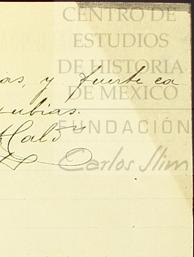 CENTRO DE
ESTUDIOS
DE HISTORIA
DE MÉXICO
FUNDACIÓN
Carlos Slim
as, y fuerte ca
ubias.